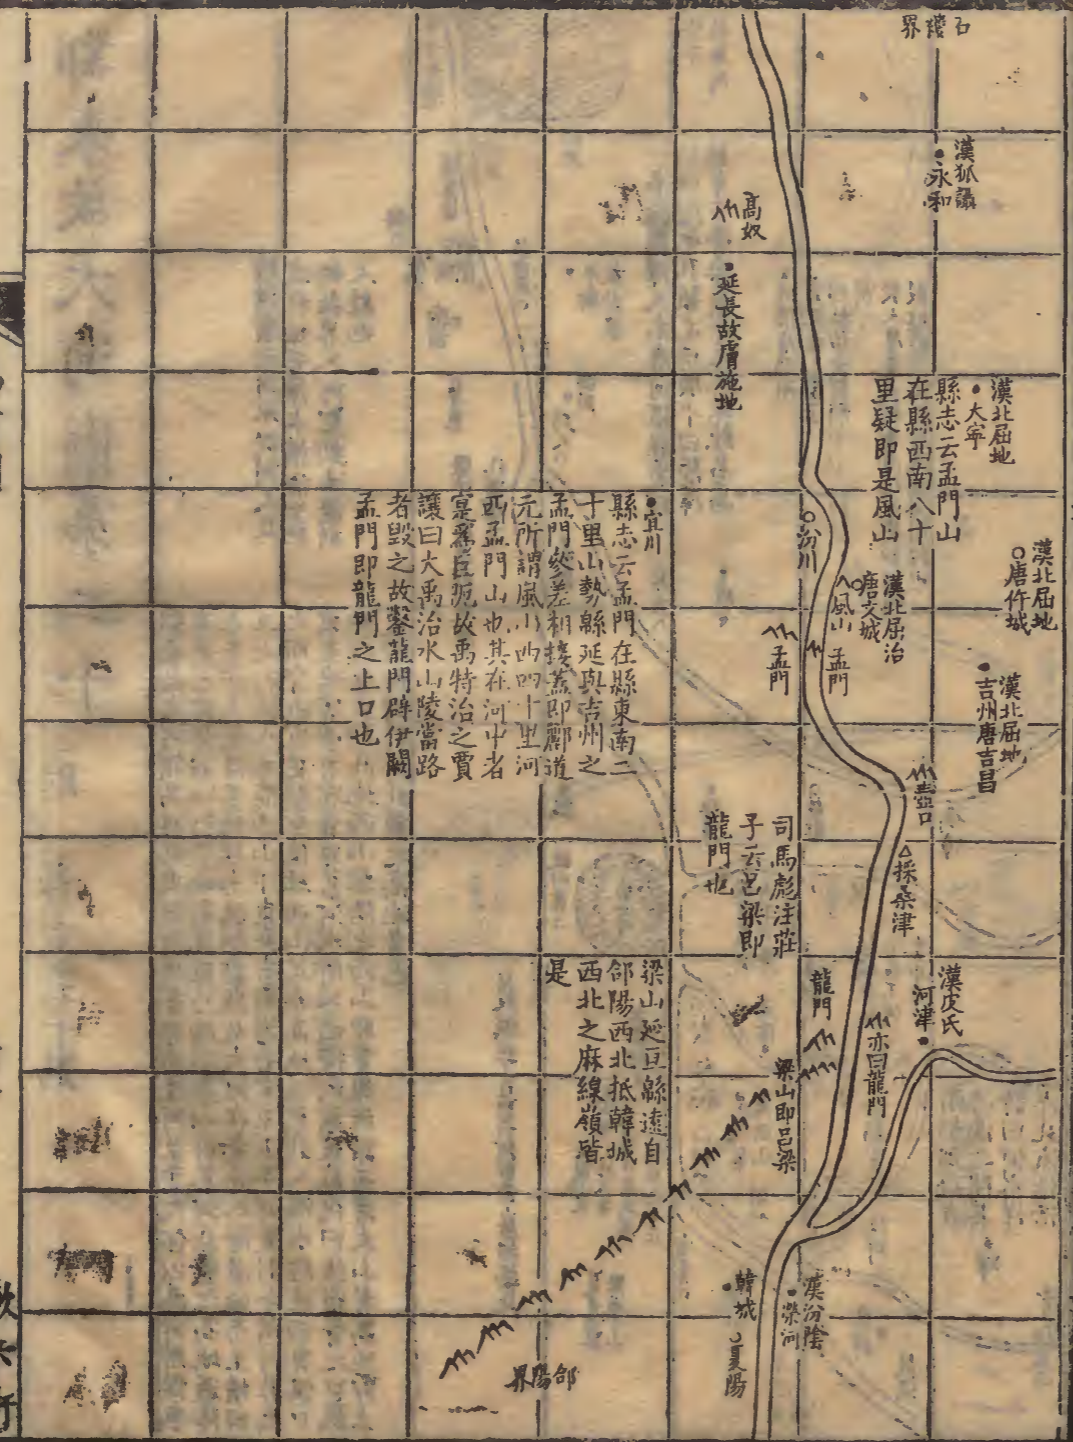 石樓界
漢狐讘
永和
高奴
延長故膚施地
漢北屈地
大寧
縣志云孟門山
在縣西南八十
里疑即是風山
漢北屈地
唐仵城
汾川
漢北屈治
唐文城
風山
孟門
孟門
宜川
縣志云孟門在縣東南二
十里山勢緜延與吉州之
孟門參差相接蓋即酈道
元所謂風山西四十里河
西孟門山也其在河中者
寔爲巨阨故禹特治之賈
讓曰大禹治水山陵當路
者毀之故鑿龍門辟伊闕
孟門即龍門之上口也
漢北屈地
吉州唐吉昌
壺口
採桑津
司馬彪注莊
子云呂梁即
龍門也
漢皮氏
河津
龍門
亦曰龍門
梁山即呂梁
梁山延亘緜遠自
郃陽西北抵韓城
西北之麻線嶺皆
是
漢汾陰
榮河
韓城
夏陽
郃陽界